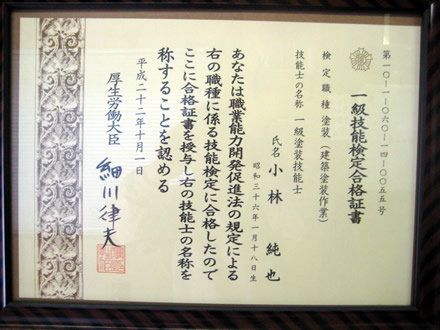 第一〇-一-〇六〇-一四-〇〇五五号
一級技能検定合格証書
検定職種 塗装(建築塗装作業)
技能士の名称 一級塗装技能士
氏名 小林 純也
昭和三十六年一月十八日生
あなたは職業能力開発促進法の規定による
右の職種に係る技能検定に合格したので
ここに合格証書を授与し右の技能士の名称を
称することを認める
平成二十二年十月一日
厚生労働大臣 細川律夫